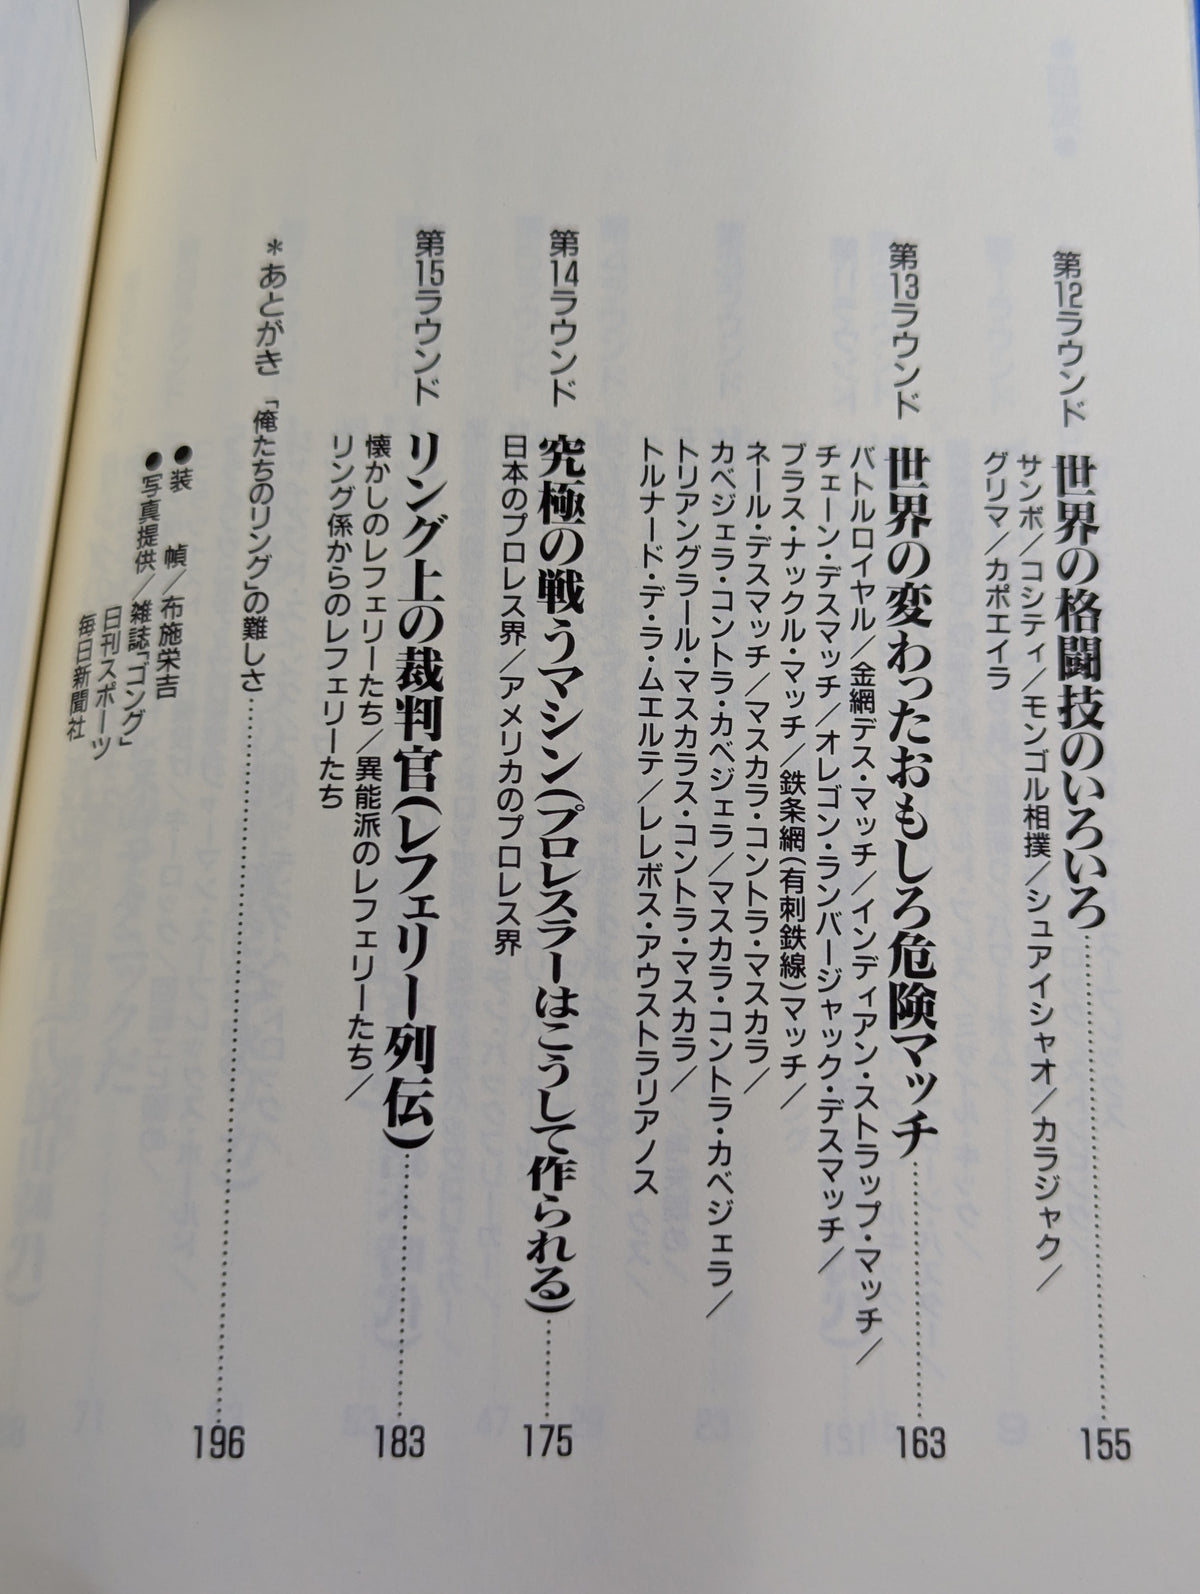 第12ラウンド 世界の格闘技のいろいろ…………155
サンボ／コシティ／モンゴル相撲／シュアイシャオ／カラジャク／
グリマ／カポエイラ
第13ラウンド 世界の変わったおもしろ危険マッチ…………163
バトルロイヤル／金網デス・マッチ／インディアン・ストラップ・マッチ／
チェーン・デスマッチ／オレゴン・ランバージャック・デスマッチ／
ブラス・ナックル・マッチ／鉄条網(有刺鉄線)マッチ／
ネール・デスマッチ／マスカラ・コントラ・マスカラ／
カベジェラ・コントラ・カベジェラ／マスカラ・コントラ・カベジェラ／
トリアングラール・マスカラス・コントラ・マスカラ／
トルナード・デ・ラ・ムエルテ／レレボス・アウストラリアノス
第14ラウンド 究極の戦うマシン(プロレスラーはこうして作られる)…………175
日本のプロレス界／アメリカのプロレス界
第15ラウンド リング上の裁判官(レフェリー列伝)…………183
懐かしのレフェリーたち／異能派のレフェリーたち／
リング係からのレフェリーたち
＊あとがき 「俺たちのリング」の難しさ…………196
●装 幀／布施栄吉
●写真提供／雑誌「ゴング」
日刊スポーツ
毎日新聞社